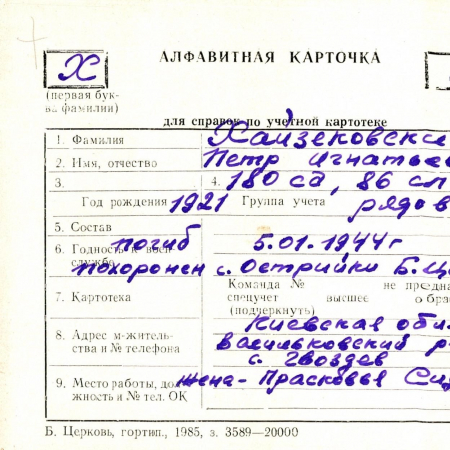 АЛФАВИТНАЯ КАРТОЧКА
Х
(первая бук-
ва фамилии)
для справок по учетной картотеке
1. Фамилия Хайзековски
2. Имя, отчество Петр Игнатьев
3. 4. 180 сд, 86 сп
Год рождения 1921 Группа учета рядов
5. Состав
погиб 5.01.1944г
6. Годность к воен
службе похоронен с. Острийки Б.Ц
Команда № не предна
7. Картотека спецучет высшее обра
(подчеркнуть)
8. Адрес м-житель-
ства и № телефона
Киевская обл
Васильковский р
с. Гвоздев
9. Место работы, дол
жность и № тел. ОК
жена - Прасковья
Б. Церковь, гортип., 1985, з. 3589—20000